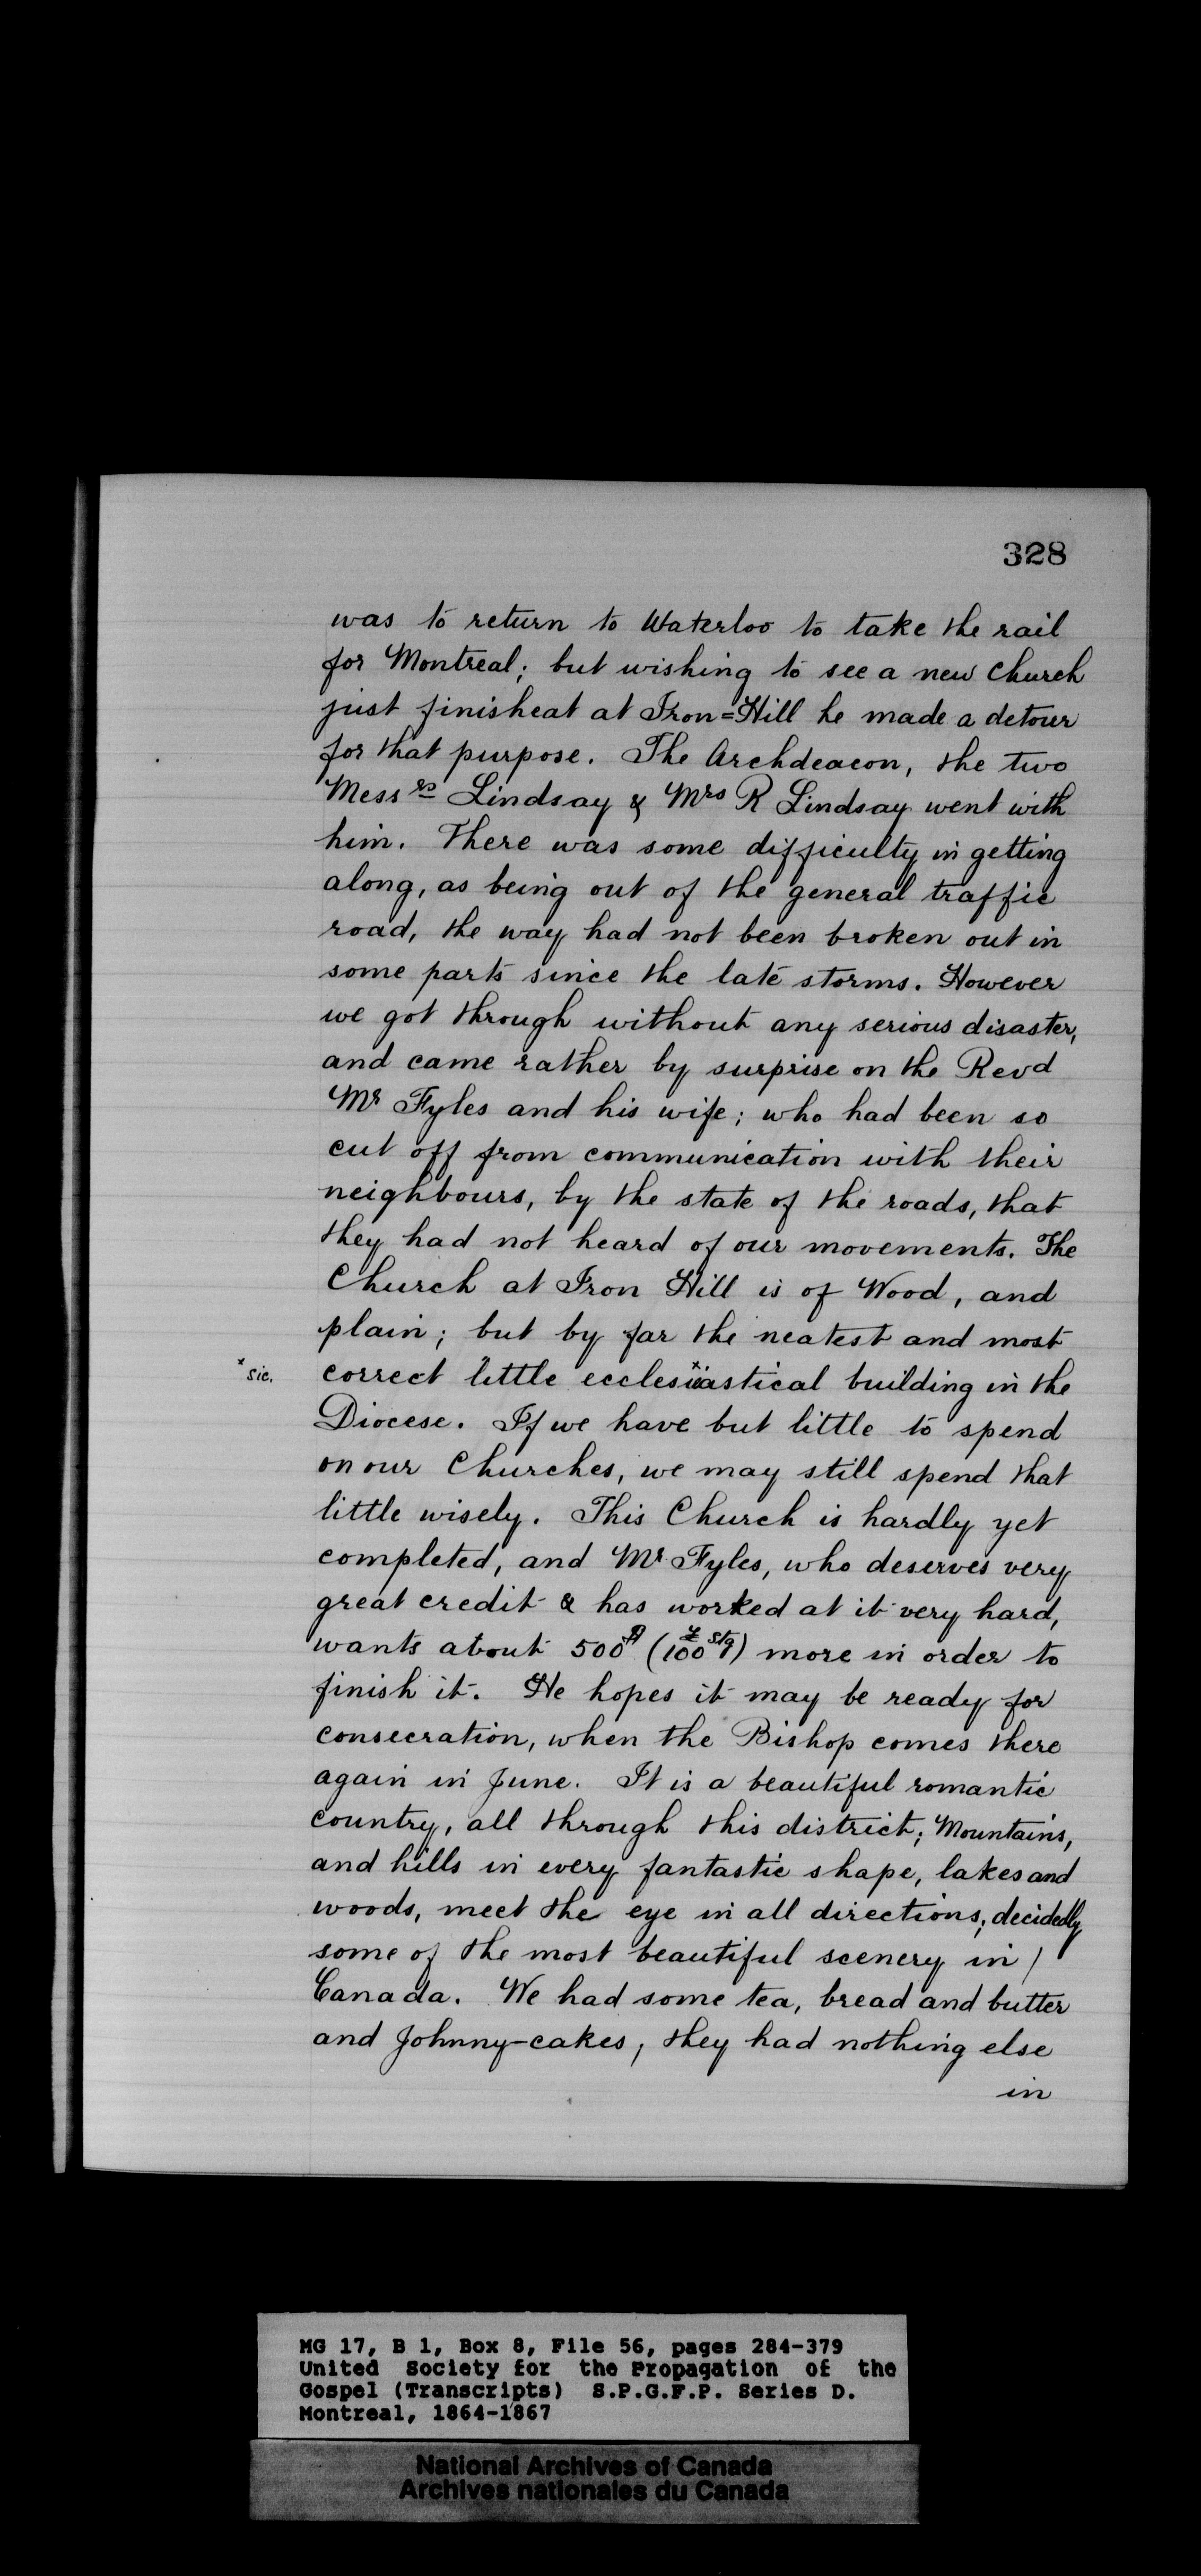 328
was to return to Waterloo to take the rail
for Montreal; but wishing to see a new Church
just finisheat at Iron=Hill he made a detour
for that purpose. The Archdeacon, the two
Messrs Lindsay & Mrs R Lindsay went with
him. There was some difficulty in getting
along, as being out of the general traffic
road, the way had not been broken out in
some parts since the late storms. However
we got through without any serious disaster,
and came rather by surprise on the Revd
Mr Fyles and his wife; who had been so
cut off from communication with their
neighbours, by the state of the roads, that
they had not heard of our movements. The
Church at Iron Hill is of Wood, and
plain; but by far the neatest and most
x sic. correct little ecclesiiastical building in the
Diocese. If we have but little to spend
on our Churches, we may still spend that
little wisely. This Church is hardly yet
completed, and Mr Fyles, who deserves very
great credit & has worked at it very hard,
wants about 500$ (100£ Stg) more in order to
finish it. He hopes it may be ready for
consecration, when the Bishop comes there
again in June. It is a beautiful romantic
country, all through this district; Mountains,
and hills in every fantastic shape, lakes and
woods, meet the eye in all directions; decidedly
some of the most beautiful scenery in /
Canada. We had some tea, bread and butter
and Johnny-cakes, they had nothing else
in
MG 17, B 1, Box 8, File 56, pages 284-379
United Society for the Propagation of the
Gospel (Transcripts) S.P.G.F.P. Series D.
Montreal, 1864-1867
National Archives of Canada
Archives nationales du Canada